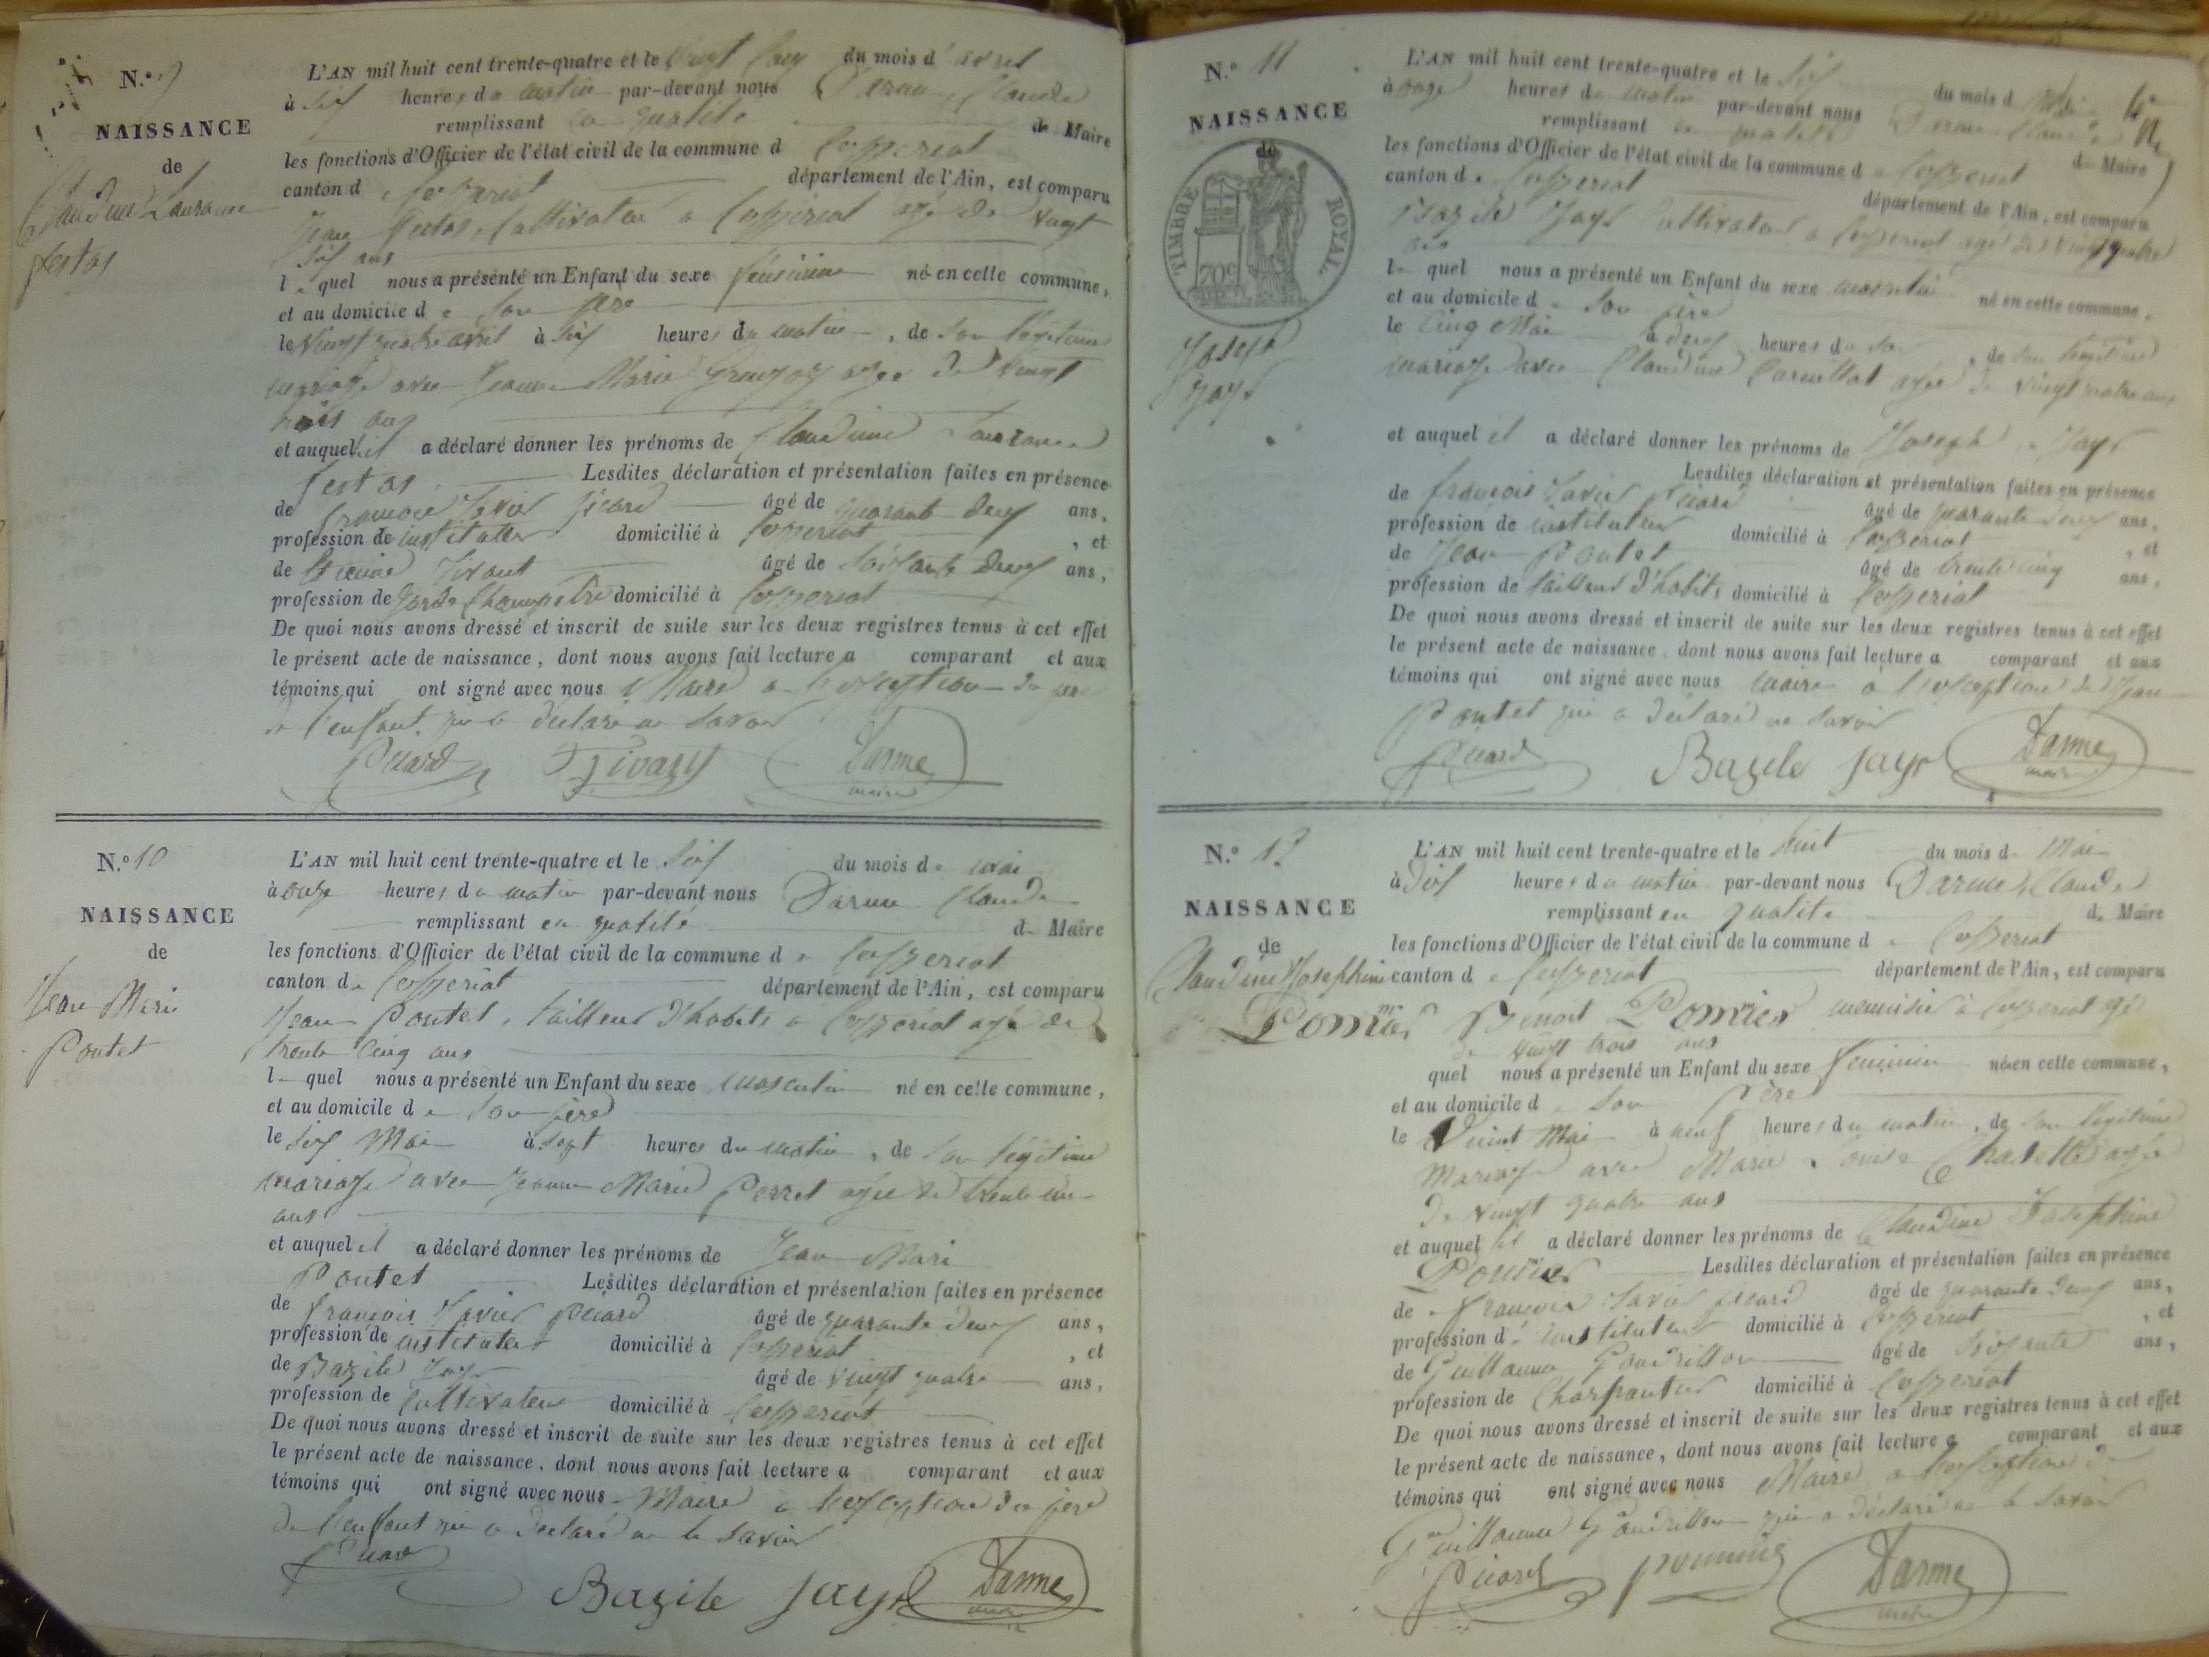 N.° 9
NAISSANCE
de
Claudine Laurance
festas
L'AN mil huit cent trente-quatre et le vingt cinq du mois d'avril
à six heures du matin par-devant nous Darme Claude
remplissant en qualité de Maire
les fonctions d'Officier de l'état civil de la commune de Ceyzeriat
canton de Ceyzeriat département de l'Ain, est comparu
Jean festas, Cultivateur à Ceyzeriat agé de vingt
six ans
lequel nous a présenté un Enfant du sexe féminin né en cette commune,
et au domicile de son père
le vingt quatre avril à six heures du matin, de son légitime
mariage avec Jeanne Marie agée de vingt
trois ans
et auquel il a déclaré donner les prénoms de Claudine Laurance
festas Lesdites déclaration et présentation faites en présence
de françois Xavier picard âgé de quarante deux ans,
profession de instituteur domicilié à Ceyzeriat, et
de âgé de soixante deux ans,
profession de garde Champêtre domicilié à Ceyzeriat
De quoi nous avons dressé et inscrit de suite sur les deux registres tenus à cet effet
le présent acte de naissance, dont nous avons fait lecture a comparant et aux
témoins qui ont signé avec nous Maire à l'exception du père
de l'enfant qui a déclaré ne savoir
Picard Darme
maire
N.° 10
NAISSANCE
de
Jean Mari
Poutet
L'AN mil huit cent trente-quatre et le six du mois de mai
à onze heures du matin par-devant nous Darme Claude
remplissant en qualité de Maire
les fonctions d'Officier de l'état civil de la commune de Ceyzeriat
canton de Ceyzeriat département de l'Ain, est comparu
Jean Poutet, tailleur d'habits à Ceyzeriat agé de
trente cinq ans
lequel nous a présenté un Enfant du sexe masculin né en cette commune,
et au domicile de son père
le six Mai à sept heures du matin, de son légitime
mariage avec Jeanne Marie Perret agée de trente un
ans
et auquel il a déclaré donner les prénoms de Jean Mari
Poutet Lesdites déclaration et présentation faites en présence
de françois Xavier picard âgé de quarante deux ans,
profession de instituteur domicilié à Ceyzeriat, et
de Bazile Jayr âgé de vingt quatre ans,
profession de Cultivateur domicilié à Ceyzeriat
De quoi nous avons dressé et inscrit de suite sur les deux registres tenus à cet effet
le présent acte de naissance, dont nous avons fait lecture a comparant et aux
témoins qui ont signé avec nous Maire à l'exception du père
de l'enfant qui a déclaré ne le savoir
Picard Bazile Jayr Darme
maire
N.° 11
NAISSANCE
de
TIMBRE ROYAL
70 c
Joseph
Jayr
L'AN mil huit cent trente-quatre et le six du mois de Mai
à onze heures du matin par-devant nous Darme Claude
remplissant en qualité de Maire
les fonctions d'Officier de l'état civil de la commune de Ceyzeriat
canton de Ceyzeriat département de l'Ain, est comparu
Bazile Jayr Cultivateur à Ceyzeriat agé de vingt quatre
ans
lequel nous a présenté un Enfant du sexe masculin né en cette commune,
et au domicile de son père
le cinq Mai à deux heures du soir, de son légitime
mariage avec Claudine agée de vingt quatre ans
et auquel il a déclaré donner les prénoms de Joseph Jayr
Lesdites déclaration et présentation faites en présence
de françois Xavier picard âgé de quarante deux ans,
profession de instituteur domicilié à Ceyzeriat, et
de Jean Poutet âgé de trente cinq ans,
profession de tailleur d'habits domicilié à Ceyzeriat
De quoi nous avons dressé et inscrit de suite sur les deux registres tenus à cet effet
le présent acte de naissance, dont nous avons fait lecture a comparant et aux
témoins qui ont signé avec nous maire à l'exception de Jean
Poutet qui a déclaré ne savoir
Picard Bazile Jayr Darme
maire
N.° 12
NAISSANCE
de
Claudine Josephine
Pomier
L'AN mil huit cent trente-quatre et le huit du mois de Mai
à dix heures du matin par-devant nous Darme Claude
remplissant en qualité de Maire
les fonctions d'Officier de l'état civil de la commune de Ceyzeriat
canton de Ceyzeriat département de l'Ain, est comparu
Benoit Pomier menuisier à Ceyzeriat agé
de vingt trois ans
quel nous a présenté un Enfant du sexe féminin né en cette commune,
et au domicile de son père
le huit Mai à neuf heures du matin, de son légitime
mariage avec Marie Louise agée
de vingt quatre ans
et auquel il a déclaré donner les prénoms de Claudine Josephine
Pomier Lesdites déclaration et présentation faites en présence
de françois Xavier picard âgé de quarante deux ans,
profession de instituteur domicilié à Ceyzeriat, et
de Guillaume Goudrillon âgé de soixante ans,
profession de Charpentier domicilié à Ceyzeriat
De quoi nous avons dressé et inscrit de suite sur les deux registres tenus à cet effet
le présent acte de naissance, dont nous avons fait lecture a comparant et aux
témoins qui ont signé avec nous Maire à l'exception de
Guillaume Goudrillon qui a déclaré ne le savoir
Picard Darme
maire